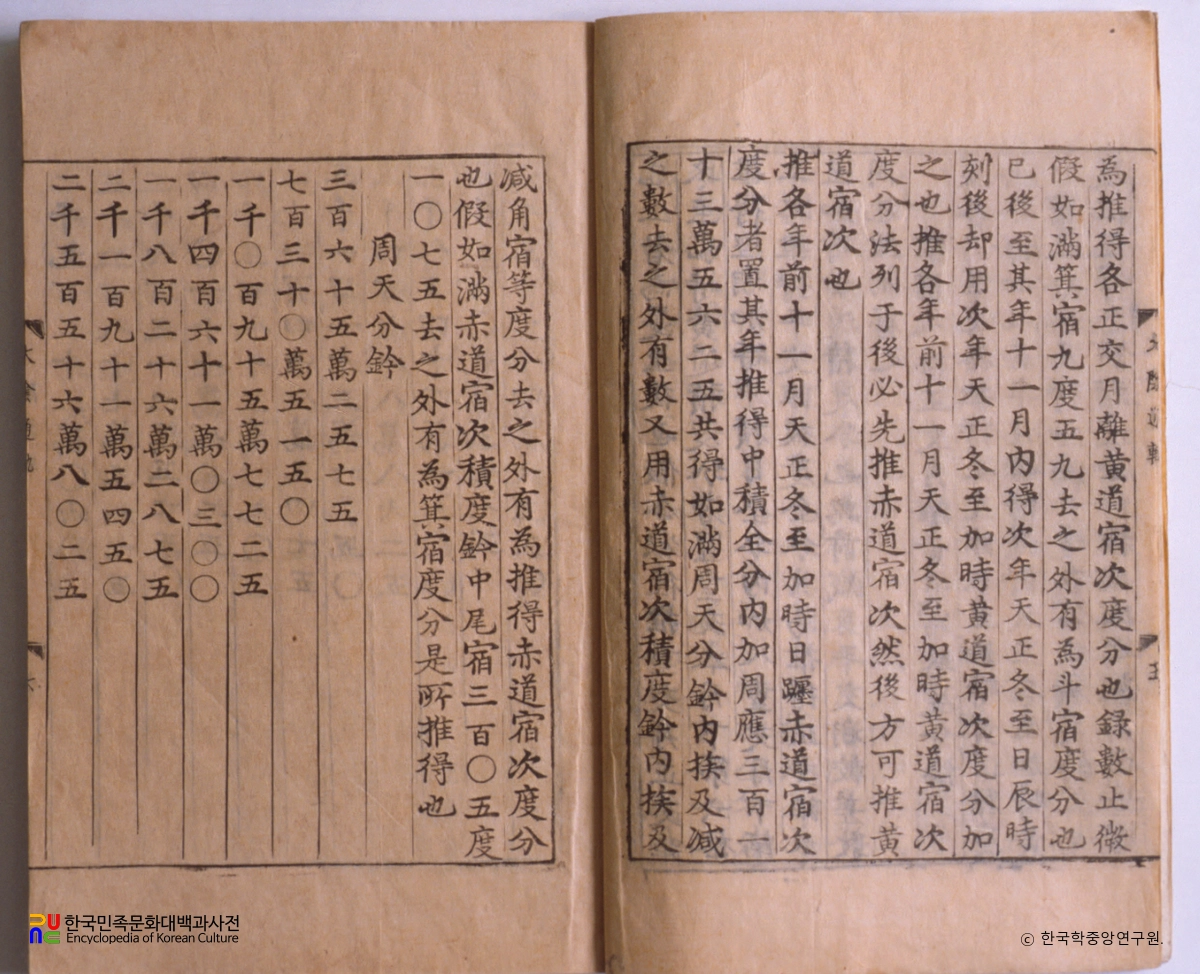 為推得各正交月離黃道宿次度分也録數止微
假如滿箕宿九度五九去之外有為斗宿度分也
已後至其年十一月內得次年天正冬至日辰時
刻後却用次年天正冬至加時黃道宿次度分加
之也推各年前十一月天正冬至加時黃道宿次
度分法列于後必先推赤道宿次然後方可推黃
道宿次也
推各年前十一月天正冬至加時日躔赤道宿次
度分者置其年推得中積全分內加周應三百一
十三萬五六二五共得如滿周天分鈐內挨及減
之數去之外有數又用赤道宿次積度鈐內挨及
減角宿等度分去之外有為推得赤道宿次度分
也假如滿赤道宿次積度鈐中尾宿三百〇五度
一〇七五去之外有為箕宿度分是所推得也
周天分鈐
三百六十五萬二五七五
七百三十〇萬五一五〇
一千〇百九十五萬七七二五
一千四百六十一萬〇三〇〇
一千八百二十六萬二八七五
二千一百九十一萬五四五〇
二千五百五十六萬八〇二五
한국민족문화대백과사전
Encyclopedia of Korean Culture
© 한국학중앙연구원.